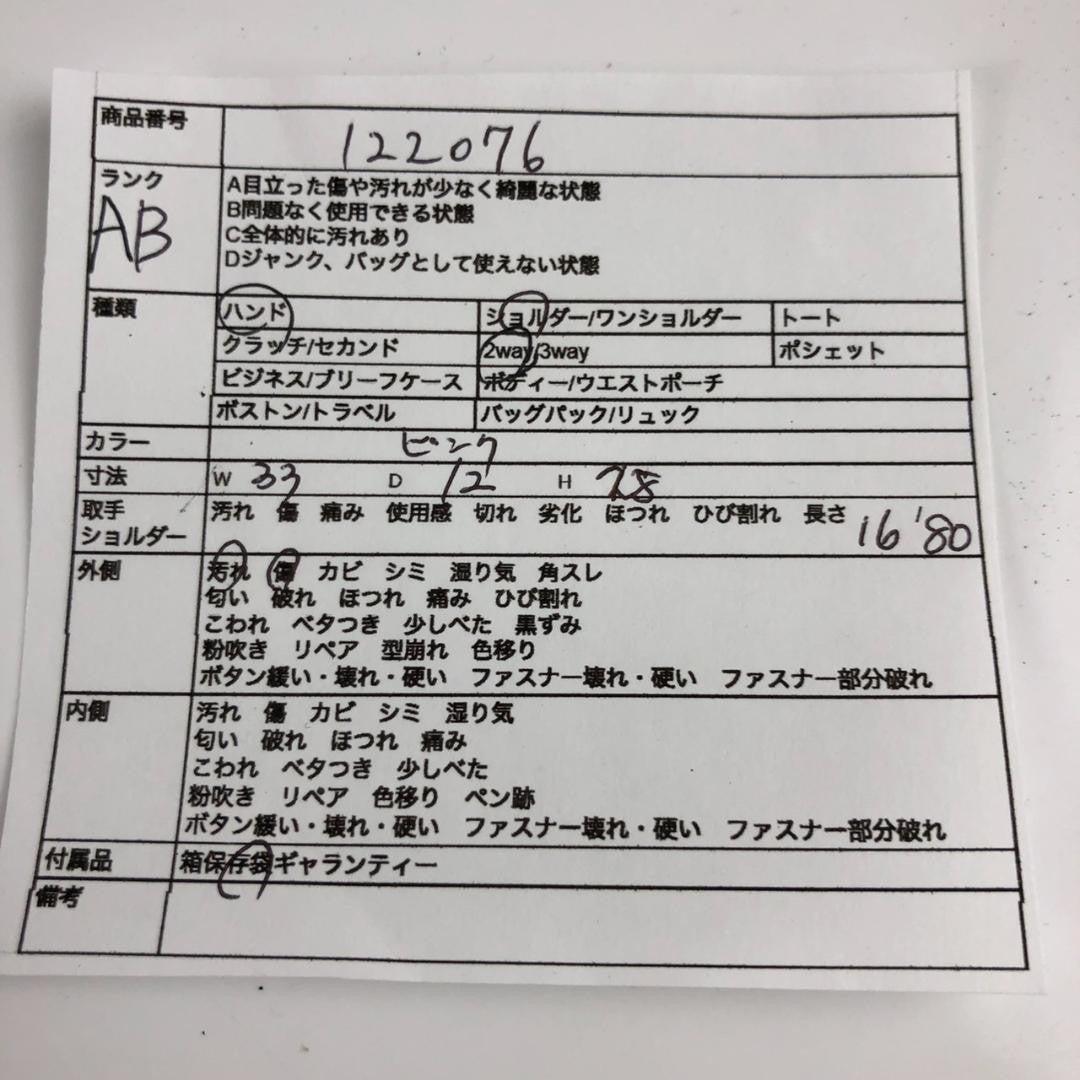 商品番号 122076
ランク A目立った傷や汚れが少なく綺麗な状態
AB B問題なく使用できる状態
C全体的に汚れあり
Dジャンク、バッグとして使えない状態
種類 ハンド ショルダー/ワンショルダー トート
クラッチ/セカンド 2way/3way ポシェット
ビジネス/ブリーフケース ボディー/ウエストポーチ
ボストン/トラベル バッグパック/リュック
カラー ピンク
寸法 W 33 D 12 H 28
取手 汚れ 傷 痛み 使用感 切れ 劣化 ほつれ ひび割れ 長さ 16'80
ショルダー
外側 汚れ 傷 カビ シミ 湿り気 角スレ
匂い 破れ ほつれ 痛み ひび割れ
こわれ ベタつき 少しべた 黒ずみ
粉吹き リペア 型崩れ 色移り
ボタン緩い・壊れ・硬い ファスナー壊れ・硬い ファスナー部分破れ
内側 汚れ 傷 カビ シミ 湿り気
匂い 破れ ほつれ 痛み
こわれ ベタつき 少しべた
粉吹き リペア 色移り ペン跡
ボタン緩い・壊れ・硬い ファスナー壊れ・硬い ファスナー部分破れ
付属品 箱保存袋ギャランティー
備考